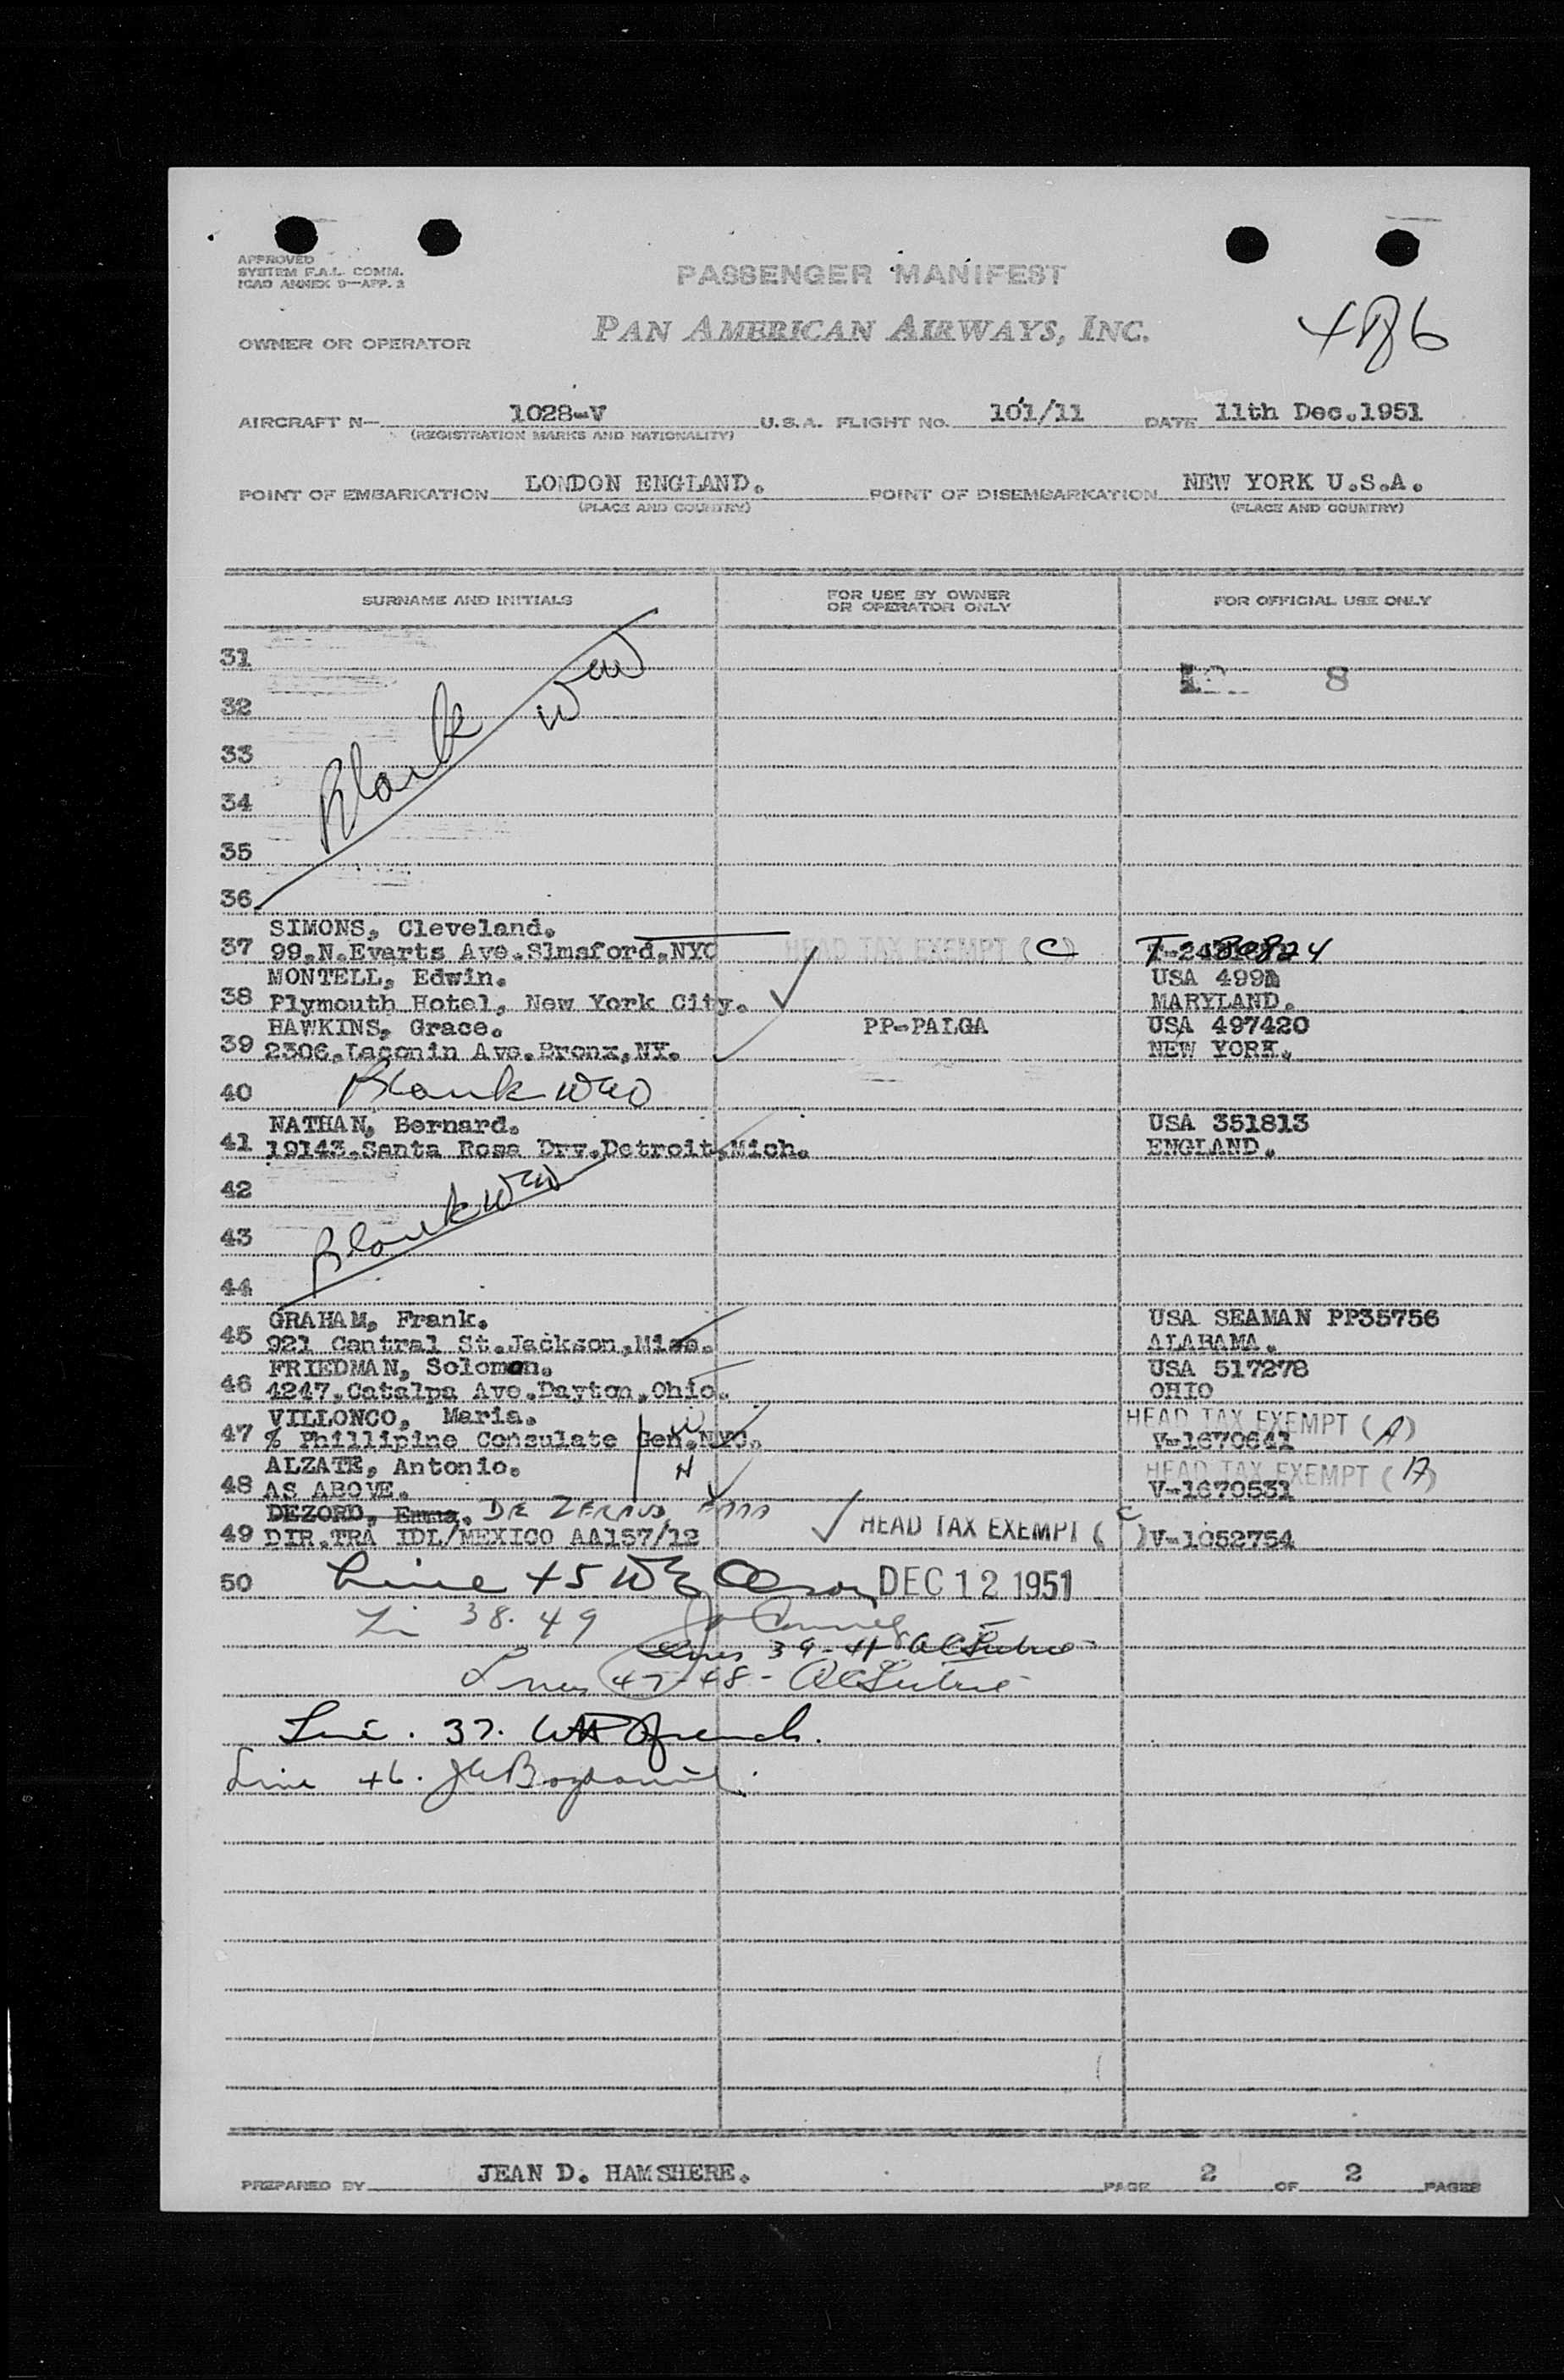 APPROVED
SYSTEM F.A.L. COMM.
ICAO ANNEX 9—APP. 3
PASSENGER MANIFEST
OWNER OR OPERATOR PAN AMERICAN AIRWAYS, INC.
AIRCRAFT N— 1028-V U.S.A. FLIGHT NO. 101/11 DATE 11th Dec.1951
(REGISTRATION MARKS AND NATIONALITY)
POINT OF EMBARKATION LONDON ENGLAND. POINT OF DISEMBARKATION NEW YORK U.S.A.
(PLACE AND COUNTRY) (PLACE AND COUNTRY)
SURNAME AND INITIALS FOR USE BY OWNER OR OPERATOR ONLY FOR OFFICIAL USE ONLY
31
8
32
33
Blank
34
35
36
SIMONS, Cleveland.
37 99.N.Evarts Ave.Slmsford.NYC HEAD TAX EXEMPT (C)
MONTELL, Edwin. USA
38 Plymouth Hotel, New York City. MARYLAND.
HAWKINS, Grace. PP-PALGA USA 497420
39 2306.Laconin Ave.Bronx,NY. NEW YORK.
40 Blank
NATHAN, Bernard. USA 351813
41 19143.Santa Rosa Drv.Detroit,Mich. ENGLAND.
42
43 Blank
44
GRAHAM, Frank. USA SEAMAN PP35756
45 921 Central St.Jackson,Miss. ALABAMA.
FRIEDMAN, Solomon. USA 517278
46 4247.Catalpa Ave.Dayton,Ohio. OHIO
VILLONCO, Maria. HEAD TAX EXEMPT (A)
47 % Phillipine Consulate Gen.NYC. V-1670641
ALZATE, Antonio. HEAD TAX EXEMPT (A)
48 AS ABOVE. V-1670531
DEZORD, Emma. DE
49 DIR.TRA IDL/MEXICO AA157/12 HEAD TAX EXEMPT (C) V-1052754
50 Line 45 DEC 12 1951
38. 49
Lines 39-41
Lines 47-48-
Line. 37.
Line 46.
PREPARED BY JEAN D. HAMSHERE. PAGE 2 OF 2 PAGES